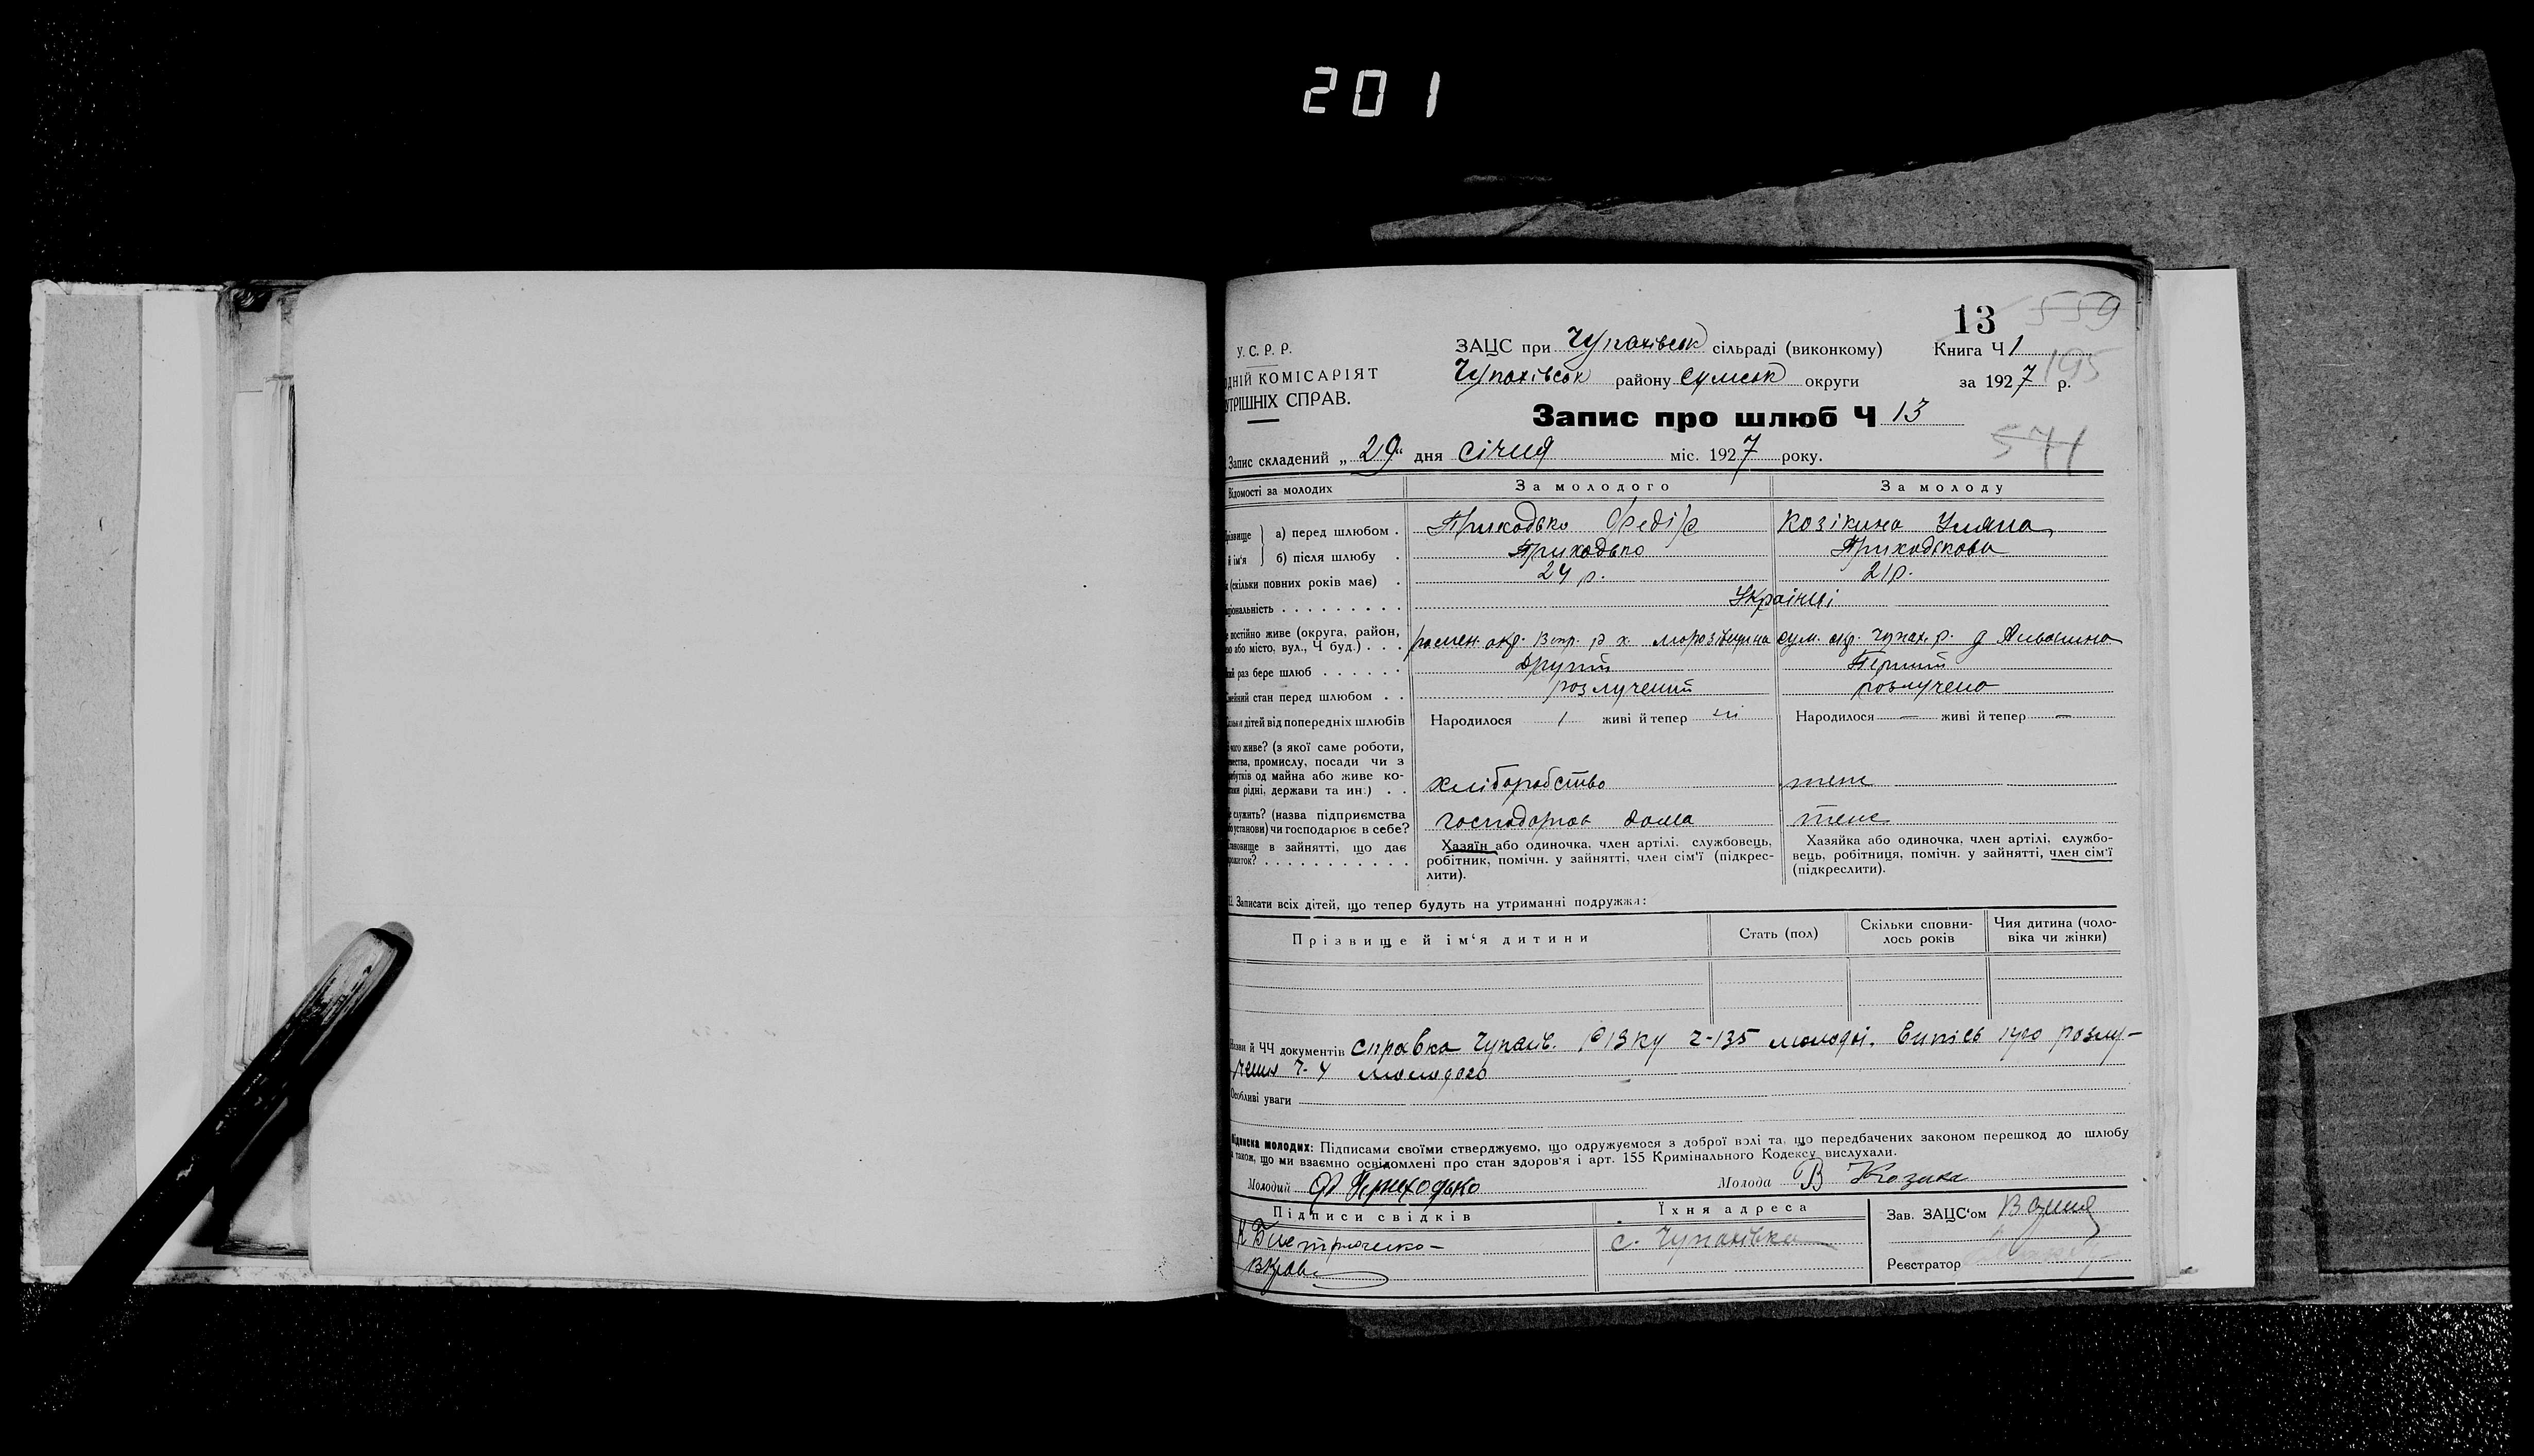 201
13 559
У. С. Р. Р.
ЗАЦС при Чупахівськ сільраді (виконкому) Книга Ч 1
195
ДНІЙ КОМІСАРІЯТ
Чупахівськ району Сумськ округи за 1927 р.
УТРІШНІХ СПРАВ.
Запис про шлюб Ч 13
571
Запис складений „ 29 “ дня Січня міс. 1927 року.
Відомості за молодих За молодого За молоду
різвище а) перед шлюбом . Приходько Федір Козікина Уляна
й ім'я б) після шлюбу . Приходько Приходькова
(скільки повних років має) . 24 р. 21 р.
ціональність . . . . . . . . . Українці
постійно живе (округа, район,
або місто, вул., Ч буд.) . . . ромен. окр. р. х. сум. окр. Чупах. р.
раз бере шлюб . . . . . . Другий Перший
мейний стан перед шлюбом . . розлучений розлучено
дітей від попередніх шлюбів Народилося 1 живі й тепер Народилося — живі й тепер —
чого живе? (з якої саме роботи,
мества, промислу, посади чи з
бутків од майна або живе ко-
рідні, держави та ин.) . . хліборобство теж
служить? (назва підприємства
установи) чи господарює в себе? господарює дома теж
тановище в зайнятті, що дає
прожиток? . . . . . . . . . . .
Хазяїн або одиночка, член артілі, службовець,
робітник, помічн. у зайнятті, член сім'ї (підкрес-
лити).
Хазяйка або одиночка, член артілі, службо-
вець, робітниця, помічн. у зайнятті, член сім'ї
(підкреслити).
Записати всіх дітей, що тепер будуть на утриманні подружжа:
Прізвище й ім'я дитини Стать (пол) Скільки сповни-
лось років Чия дитина (чоло-
віка чи жінки)
Назви й ЧЧ документів Справка Чупахів. РВКу Ч-135 молодої. Випісь про розлу-
чення Ч-4 молодого
Особливі уваги
Підписка молодих: Підписами своїми стверджуємо, що одружуємося з доброї волі та, що передбачених законом перешкод до шлюбу
також, що ми взаємно освідомлені про стан здоров'я і арт. 155 Кримінального Кодексу вислухали.
Молодий Ф Приходько Молода Козика
Підписи свідків Їхня адреса Зав. ЗАЦС'ом
с. Чупахівка
Реєстратор